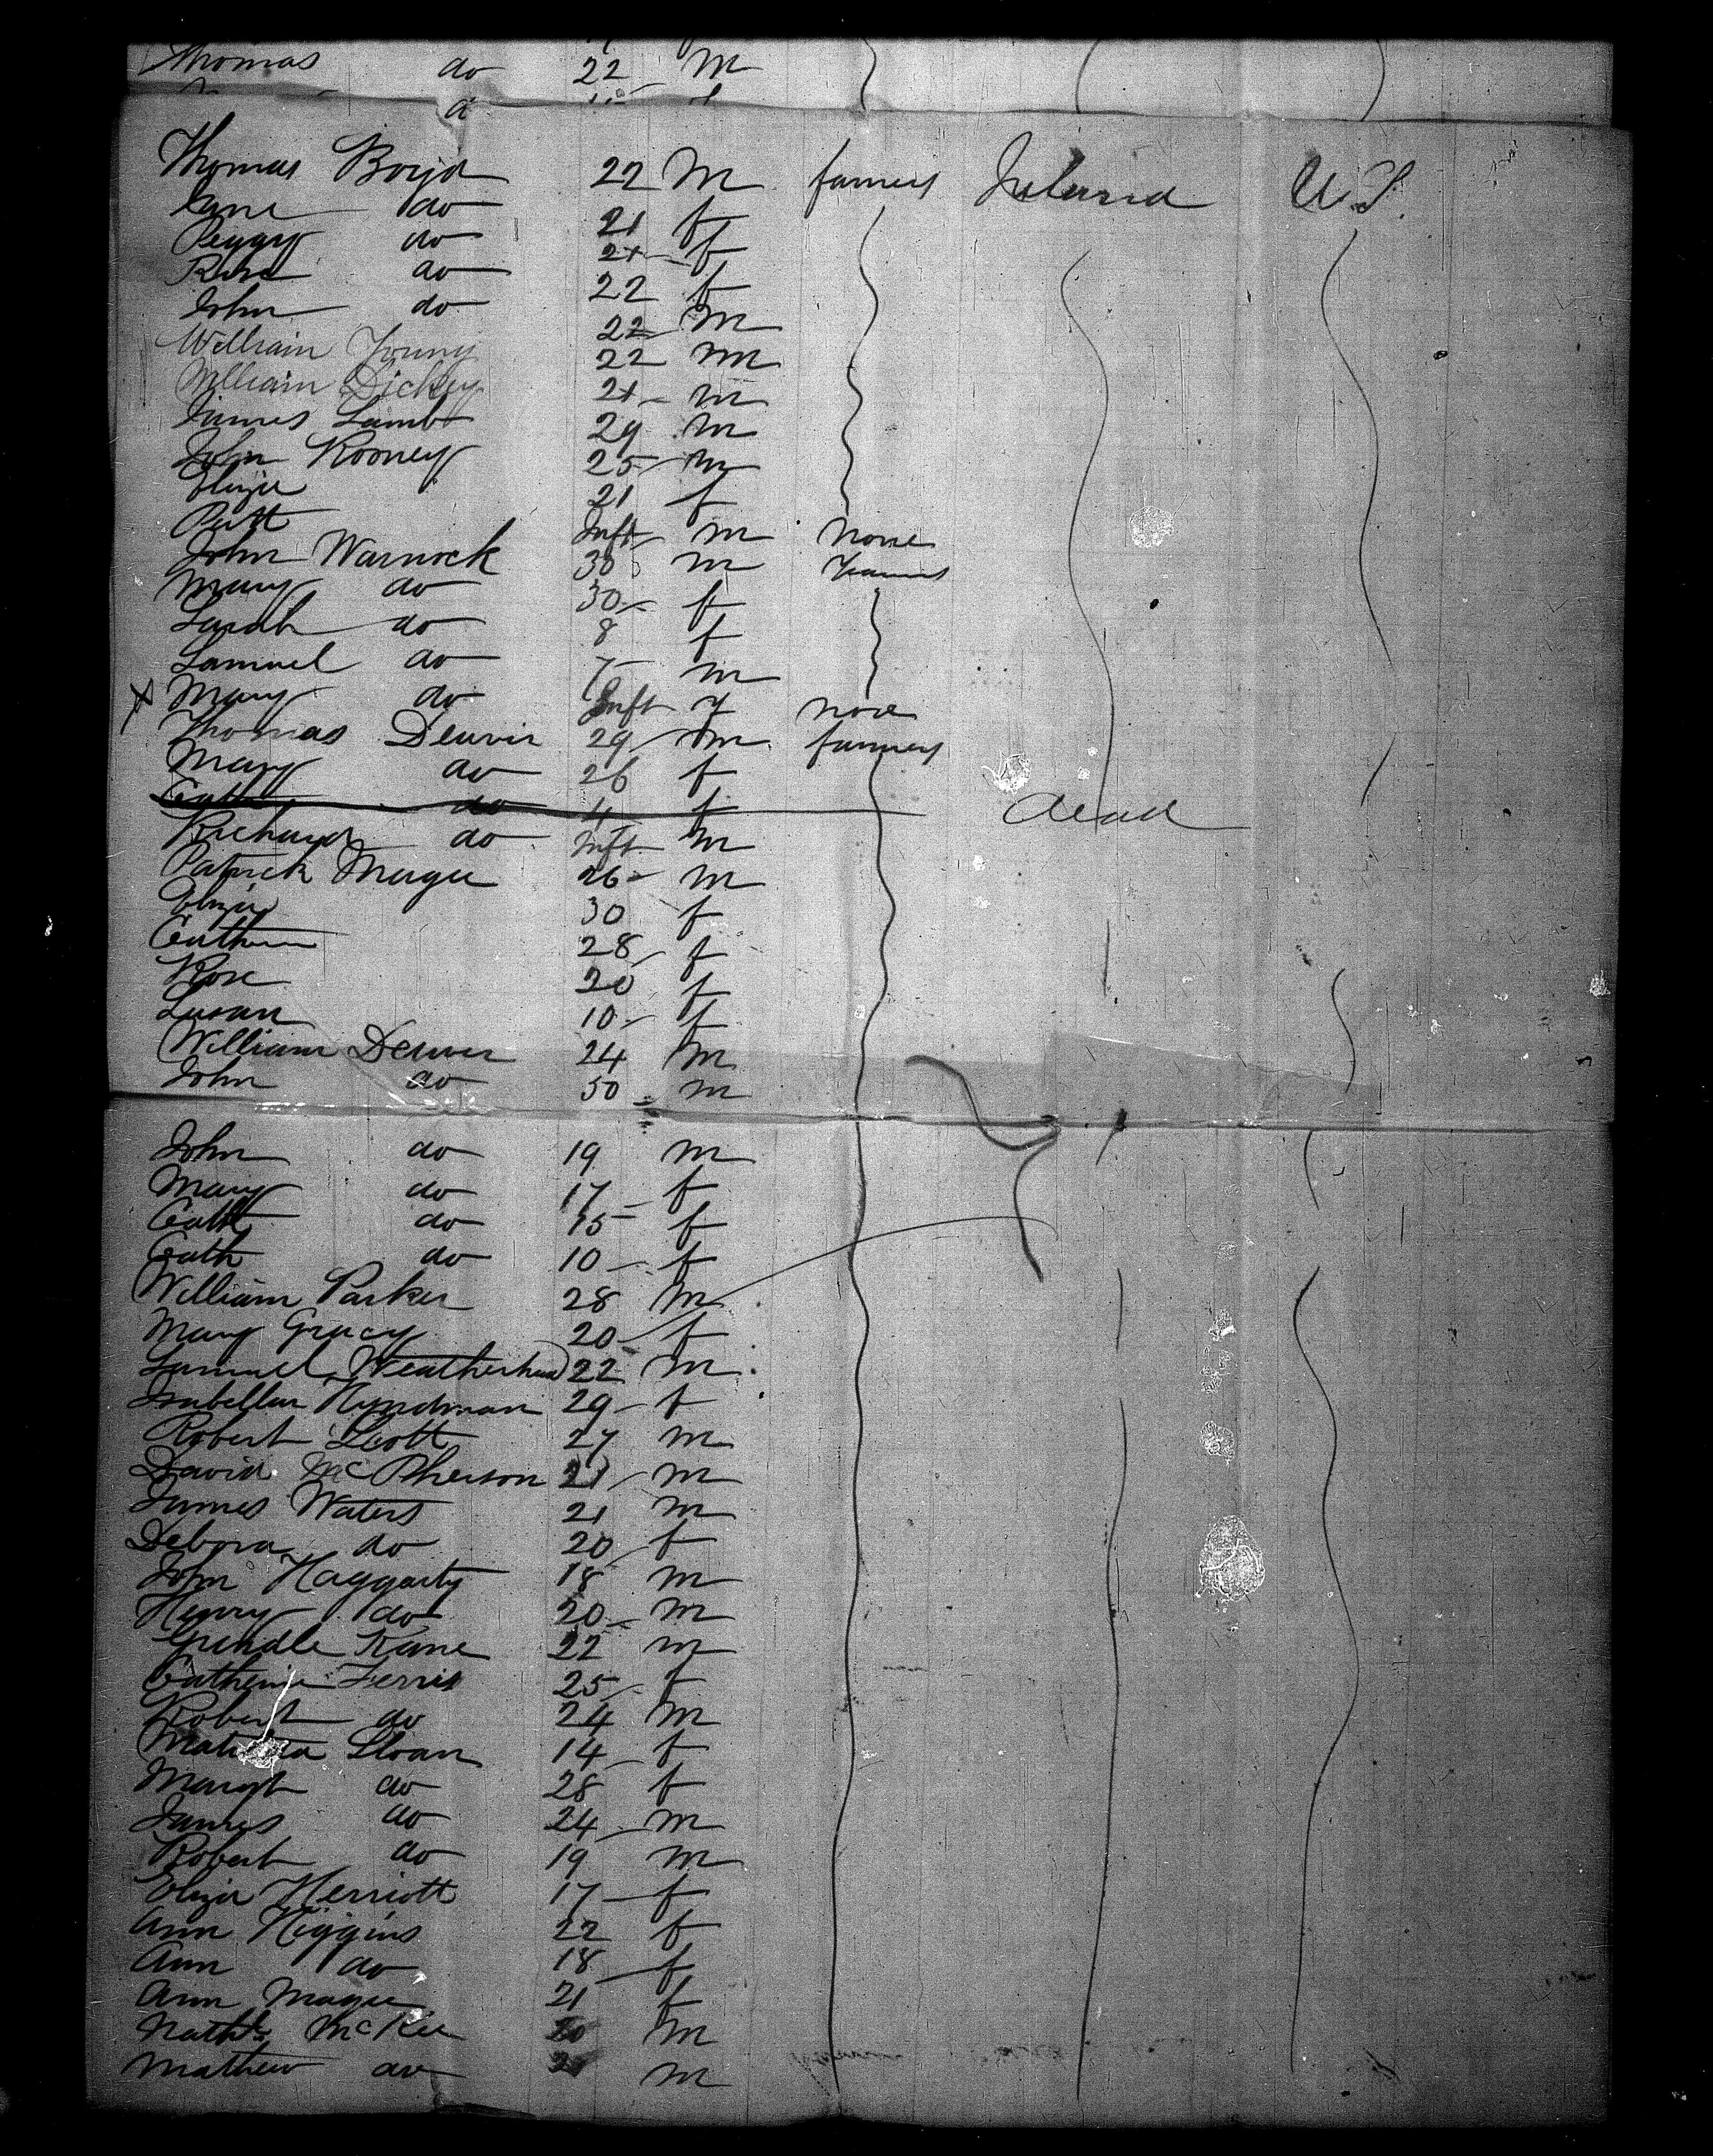 Thomas do 22 M
Thomas Boyd 22 M farmers Ireland U.S.
Jane do 21 f
Peggy do 21 f
Rose do 22 f
John do 22 M
William Young 22 m
William Dickey 21 m
James Lamb 29 m
John Rooney 25 m
Eliza 21 f
Patt Inft m none
John Warnock 30 m Farmers
Mary do 30 f
Sarah do 8 f
Samuel do 7 m
X Mary do Inft f none
Thomas Denvir 29 m farmers
Mary do 26 f
Cath do 4 f dead
Richard do Inft m
Patrick Magee 26 m
Eliza 30 f
Cathn 28 f
Rose 20 f
Susan 10 f
William Denver 24 m
John do 50 m
John do 19 m
Mary do 17 f
Cath do 15 f
Cath do 10 f
William Parker 28 m
Mary Gracy 20 f
Samuel Weatherhead 22 m
Isabella Hyndman 29 f
Robert Scott 27 m
David McPherson 21 m
James Waters 21 m
Debora do 20 f
John Haggarty 18 m
Henry do 20 m
Grindle Kane 22 m
Catherine Ferris 25 f
Robert do 24 m
Matilda Sloan 14 f
Margt do 28 f
James do 24 m
Robert do 19 m
Eliza Herriott 17 f
Ann Higgins 22 f
Ann do 18 f
Ann Magee 21 f
Nathl McKee 20 m
Mathew do 20 m